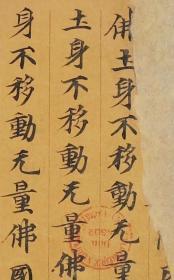 佛土身不移動无量
土身不移動无量佛
身不移動无量佛國